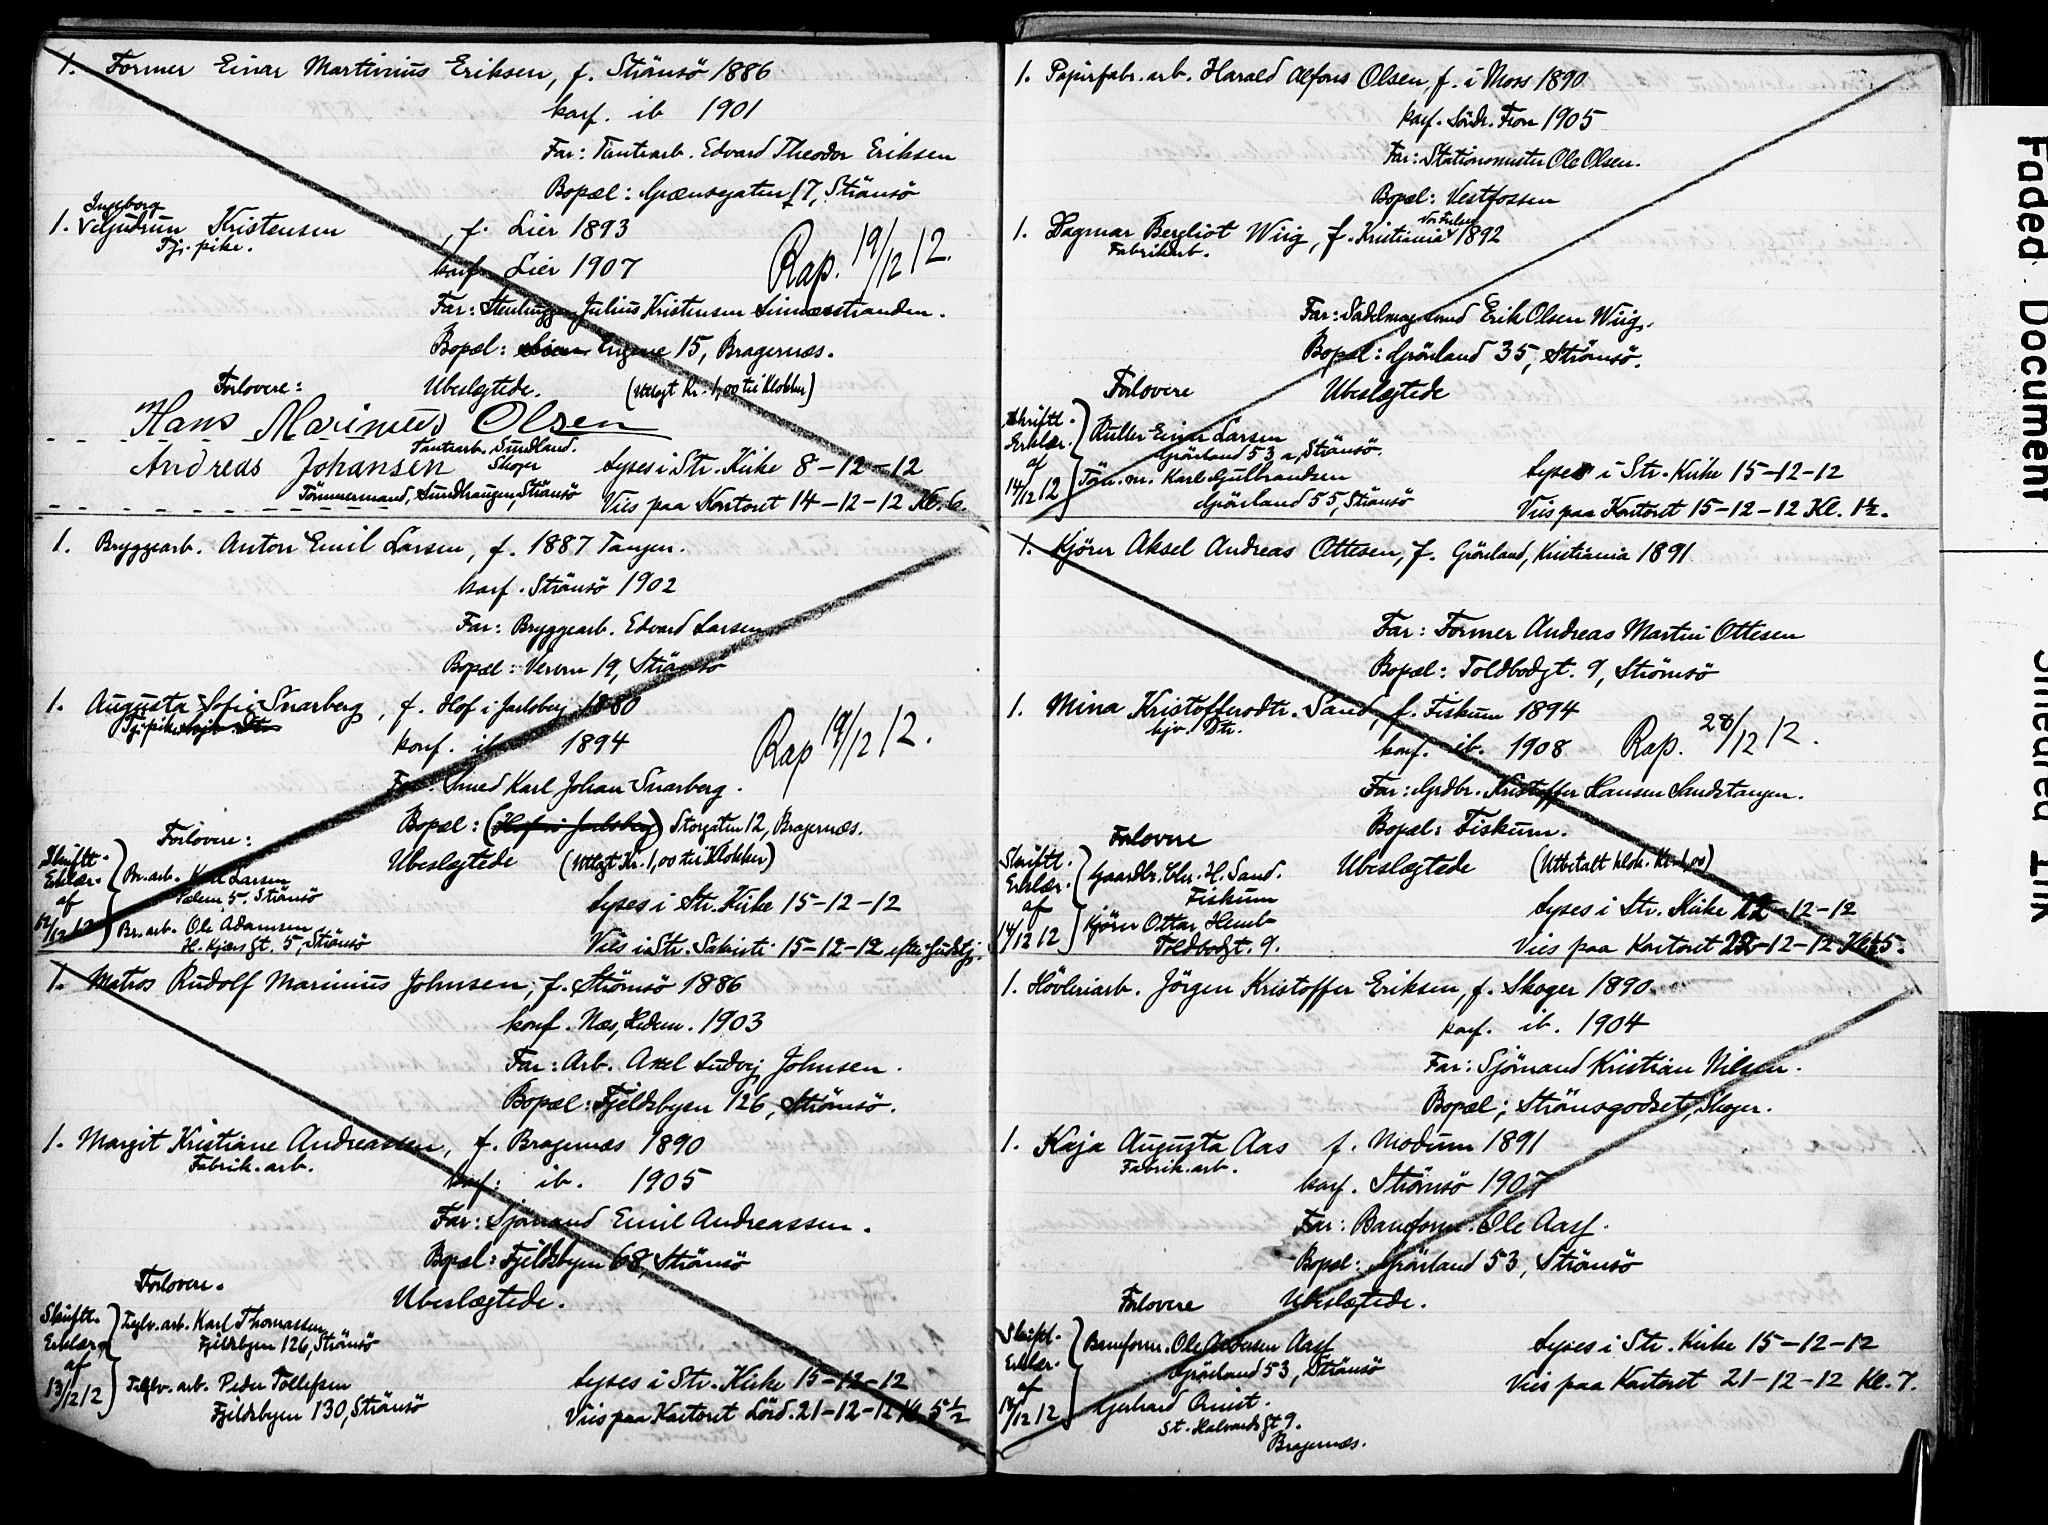 1. Former Einar Martinius Eriksen, f. Strömsö 1886
konf. ib 1901
Far: Tomtearb. Edvard Theodor Eriksen
Bopæl: Grænsegaten 17, Strömsö
Ingeborg
1. Kristensen, f. Lier 1893
Tj. pike.
konf. Lier 1907
Rap. 19/12 12.
Far: Stenhugger Julius Kristensen Linnesstranden.
Bopæl: Engene 15, Bragernæs.
Forlovere: Ubeslegtede. (Utlagt Kr. 1,00 til Klokker)
Hans Marinius Olsen
Tomtearb. Sundland. Skoger
Andreas Johansen
Tömmermand, Sundhaugen, Strömsö
Lyses i Str. Kirke 8-12-12
Vies paa Kontoret 14-12-12 Kl. 6.
1. Bryggearb. Anton Emil Larsen, f. 1887 Tangen.
konf. Strömsö 1902
Far: Bryggearb. Edvard Larsen
Bopæl: Veren 19, Strömsö
1. Augusta Sofie Snarberg, f. Hof i Jarlsberg 1880
Tj. pike
konf. ib 1894
Rap 19/12 12.
Far: Smed Karl Johan Snarberg.
Bopæl: (Hof i Jarlsberg) Storgaten 12, Bragernæs.
Forlovere: Ubeslegtede (Utlagt Kr. 1,00 til Klokker)
Skriftl. Erklær. af 12/12 12
Br. arb. Karl Larsen
5, Strömsö
Br. arb. Ole Adamsen
H. Kjærs Gt. 5, Strömsö
Lyses i Str. Kirke 15-12-12
Vies i Str. Sakristi 15-12-12 efter Gudstj.
1. Matros Rudolf Marinius Johnsen, f. Strömsö 1886
konf. Næs, Hedem. 1903
Far: Arb. Axel Ludvig Johnsen.
Bopæl: Fjeldsbyen 126, Strömsö.
1. Margit Kristiane Andreassen, f. Bragernæs 1890
Fabrik. arb.
konf: ib. 1905
Far: Sjömand Emil Andreassen.
Bopæl: Fjeldsbyen 68, Strömsö
Forlovere. Ubeslægtede.
Skriftl. Erklær. af 13/12 12
Teglv. arb. Karl Thomassen
Fjeldsbyen 126, Strömsö
Teglv. arb. Peder Tollefsen
Fjeldsbyen 130, Strömsö
Lyses i Str. Kirke 15-12-12
Vies paa Kontoret Lörd. 21-12-12 Kl. 5 1/2
1. Papirfabr. arb. Harald Alfons Olsen, f. i Moss 1890
konf. Söndr. Fron 1905
Far: Stationsmester Ole Olsen.
Bopæl: Vestfossen
1. Dagmar Bergliot Wiig, f. Kristiania Vor Frelser 1892
Fabrikarb.
Far: Sadelmagersvend Erik Olsen Wiig.
Bopæl: Grönland 35, Strömsö.
Forlovere Ubeslegtede
Skriftl. Erklær. af 14/12 12
Ruller Einar Larsen
Grönland 53 a, Strömsö.
Töm. m. Karl Gulbrandsen
Grönland 55, Strömsö
Lyses i Str. Kirke 15-12-12
Vies paa Kontoret 15-12-12 Kl. 1 1/2.
1. Kjörer Aksel Andreas Ottesen, f. Grönland, Kristiania 1891
Far: Former Andreas Martin Ottesen
Bopæl: Toldbodgt. 9, Strömsö
1. Mina Kristoffersdtr. Sand, f. Fiskum 1894
hjv. Dtr.
konf. ib. 1908 Rap. 28/12 12.
Far: Grdbr. Kristoffer Hansen Sandstangen.
Bopæl: Fiskum.
Forlovere Ubeslægtede (Utbetalt klok. Kr 1,00)
Skriftl. Erklær. af 14/12 12
Gaardbr. Chr. H. Sand.
Fiskum
Kjörer Ottar Hemb
Toldbodgt. 9.
Lyses i Str. Kirke 22-12-12
Vies paa Kontoret 22-12-12 Kl. 5.
1. Hövleriarb. Jörgen Kristoffer Eriksen, f. Skoger 1890
konf. ib. 1904
Far: Sjömand Kristian Nilsen.
Bopæl; Strömsgodset, Skoger.
1. Kaja Augusta Aas f. Modum 1891
Fabrik. arb.
konf. Strömsö 1907
Far: Baneform. Ole Aass.
Bopæl: Grönland 53, Strömsö
Forlovere Ubeslægtede.
Skriftl. Erklær. af 14/12 12
Baneform. Ole Andersen Aass
Grönland 53, Strömsö
Gerhard
St. Halvards Gt 9.
Bragernæs.
Lyses i Str. Kirke 15-12-12
Vies paa Kontoret 21-12-12 Kl. 7.
Faded Document
Smeared Ink